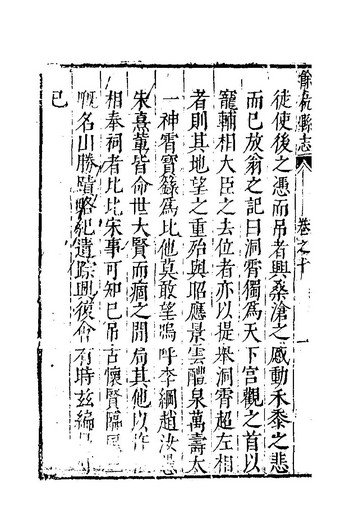 餘杭縣志
卷之十
一
徒使後之憑而吊者興桑滄之感動禾黍之悲
而已放翁之記曰洞霄獨爲天下宮觀之首以
寵輔相大臣之去位者亦以提舉洞霄超左相
者則其地望之重殆與昭應景雲醴泉萬壽太
一神霄寶籙爲比他莫敢望嗚呼李綱趙汝愚
朱熹軰皆命世大賢而痼之閒局其他以許
相奉祠者比比宋事可知已吊古懷賢隔
慨名山勝蹟略紀遺踪興復會有時茲編
已